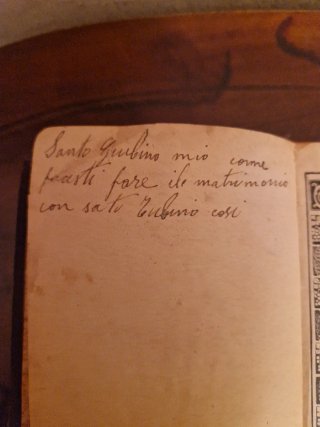 Santo Giubino mio come
facesti fare ile matrimonio
con sa to Rubino cosi